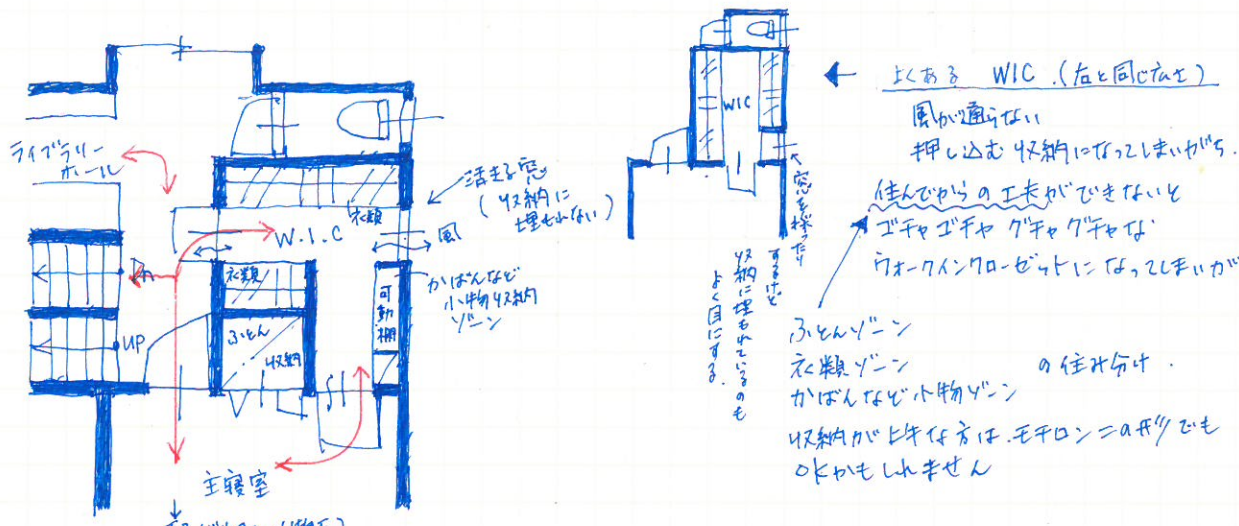 ライブラリー
ホール
衣類
W.I.C
活きる窓
(収納に
埋もれない)
風
かばんなど
小物収納
ゾーン
Dn
衣類
可動棚
UP
ふとん
収納
主寝室
WIC
窓を採ったり
するけど
収納に埋もれているのも
よく目にする.
よくある WIC.(左と同じ広さ)
風が通らない
押し込む収納になってしまいがち.
住んでからの工夫ができないと
ゴチャゴチャ グチャグチャな
ウォークインクローゼットになってしまいが
ふとんゾーン
衣類ゾーン の住み分け.
かばんなど小物ゾーン
収納が上手な方は.モチロンこの形でも
OKかもしれません